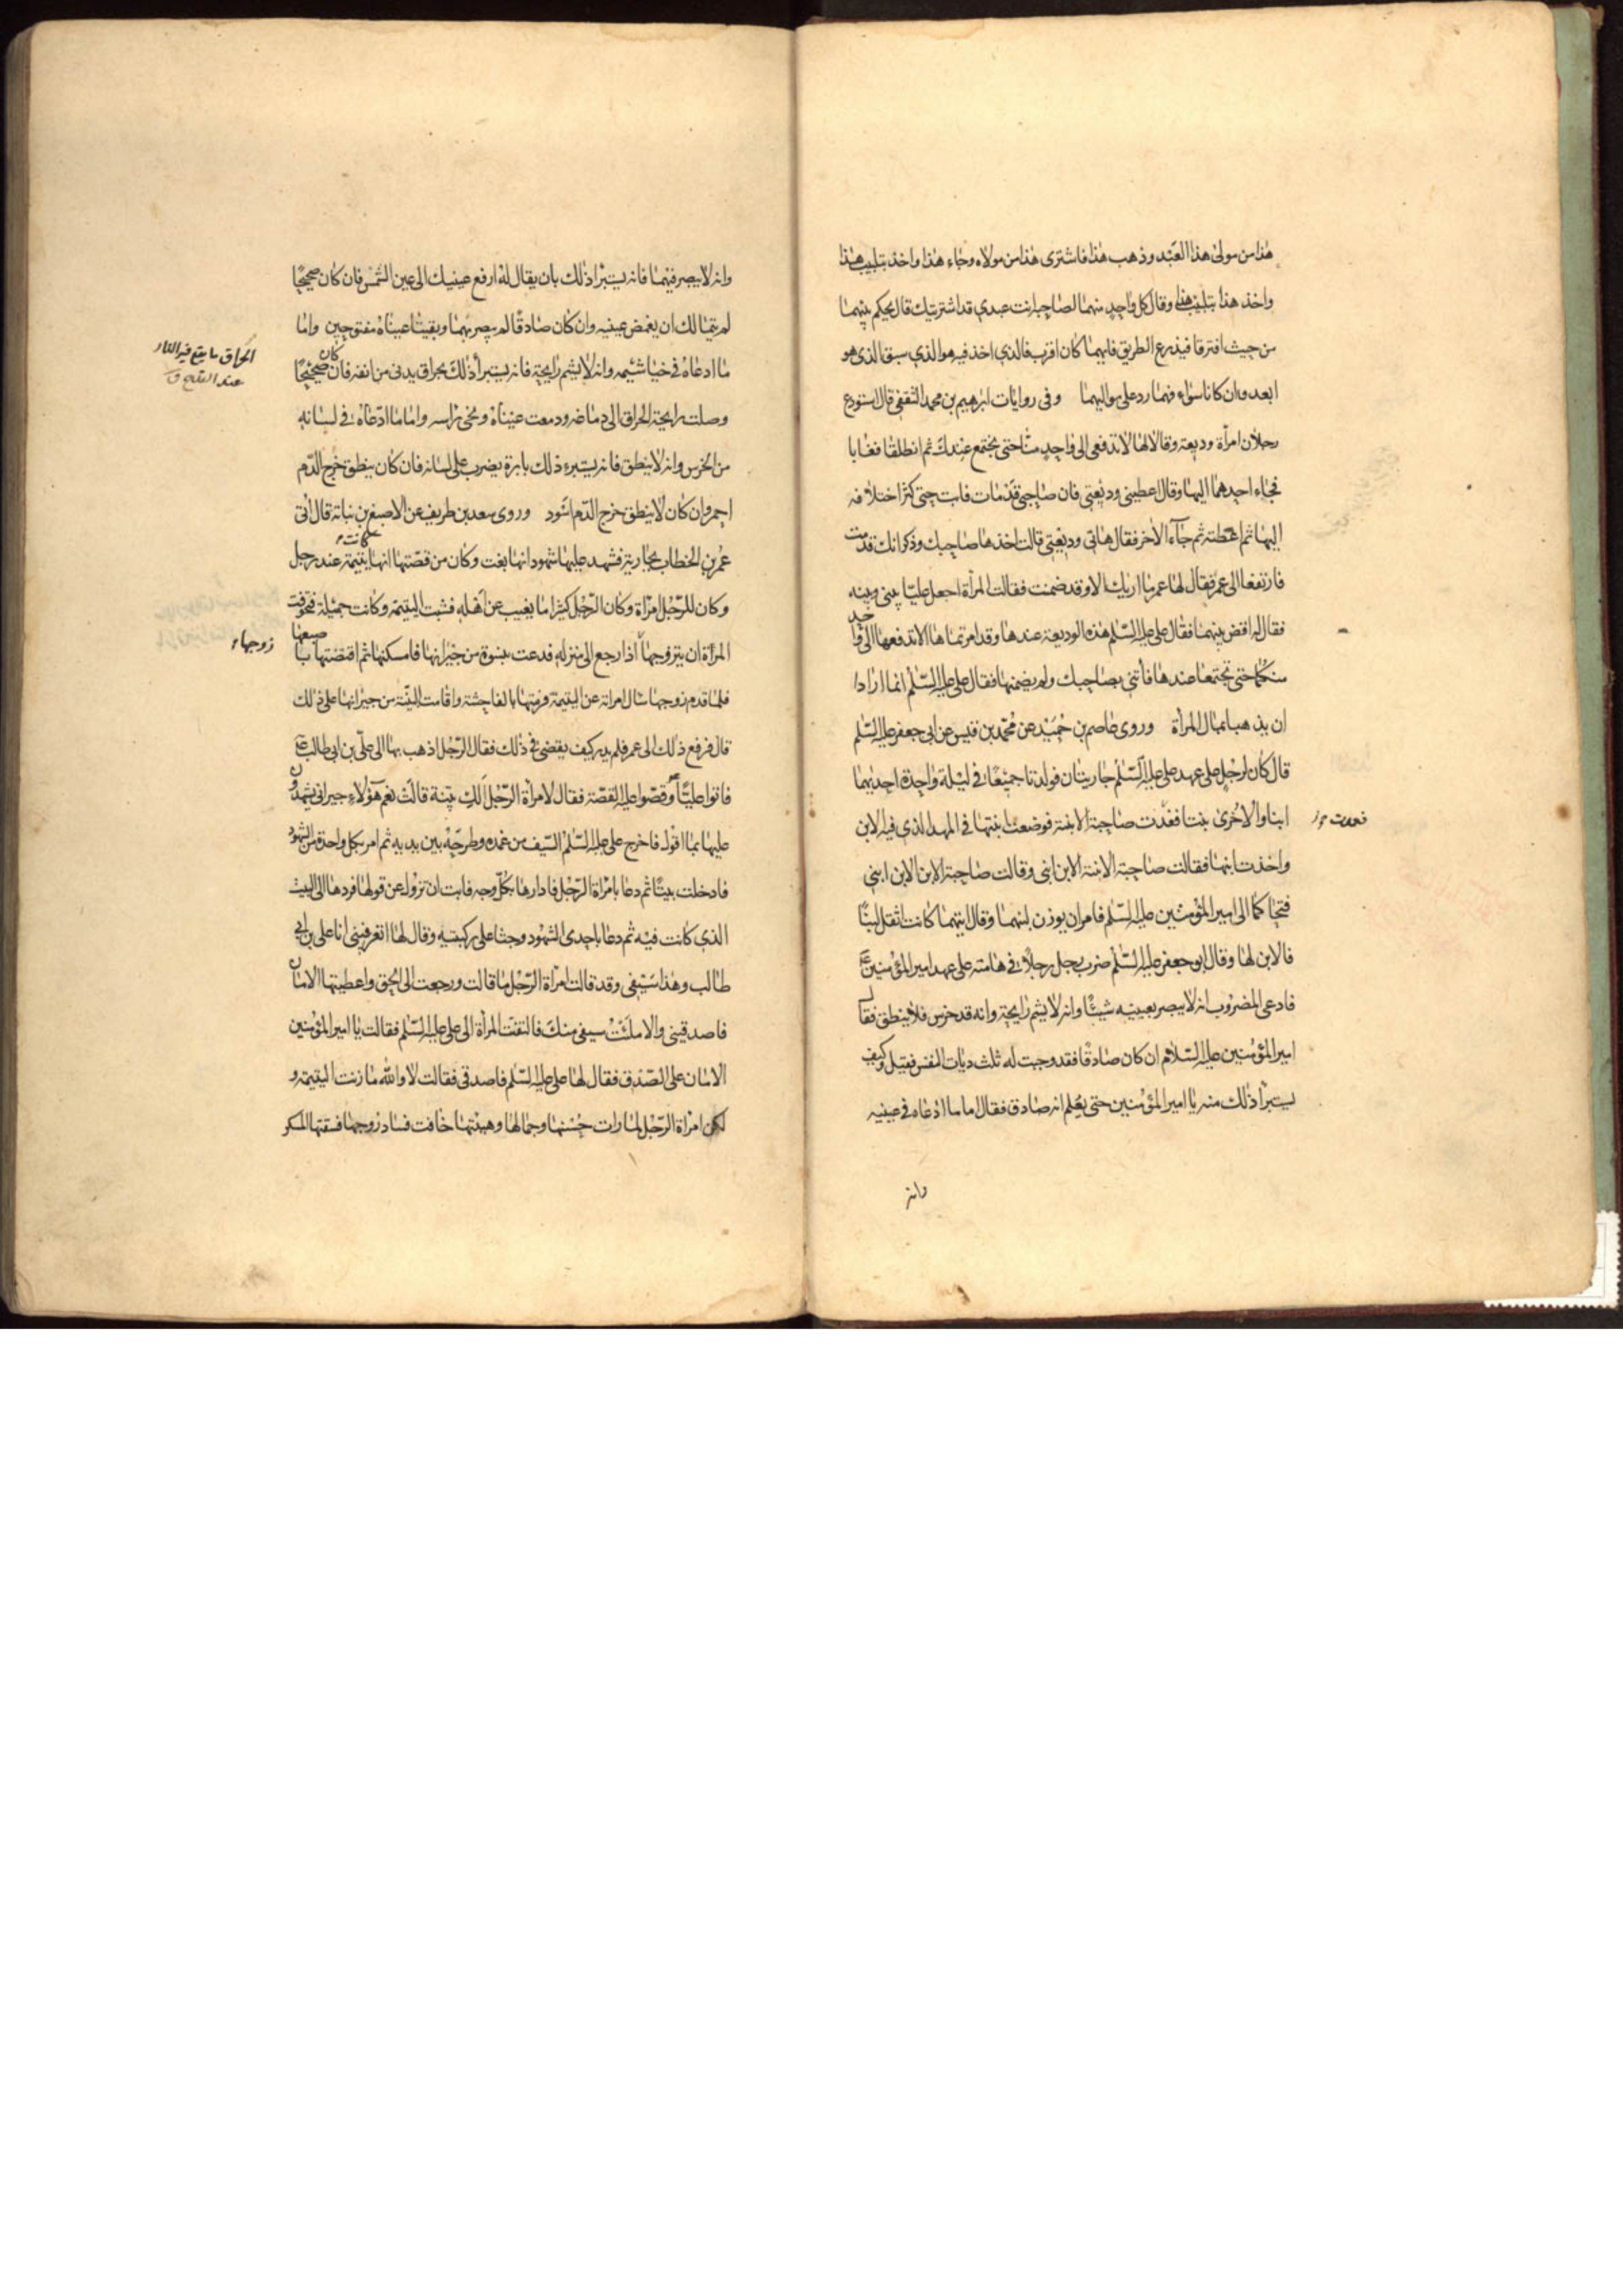 هذا من مولى هذا العبد وذهب هذا فاشترى هذا من مولاه وجاء هذا واخذ بتلبيب هذا
واخذ هذا بتلبيب هذا وقال كل واحد منهما لصاحبه انت عبدي قد اشتريتك قال يحكم بينهما
من حيث افترقا فيذرع الطريق فايهما كان اقرب فالذي اخذ فيه هو الذي سبق الذي هو
ابعد وان كانا سواء فهما رد على مواليهما وفى روايات ابرهيم بن محمد الثقفي قال استودع
رجلان امراة وديعة وقالا لها لا تدفعى الى واحد منا حتى نجتمع عندك ثم انطلقا فغابا
فجاء احدهما اليها وقال اعطينى وديعتى فان صاحبى قد مات فابت حتى كثر اختلافه
اليها ثم اعطته ثم جاء الاخر فقال هاتى وديعتى قالت اخذها صاحبك وذكر انك قد مت
فارتفعا الى عمر فقال لها عمر ما اريك الا وقد ضمنت فقالت المرأة اجعل عليا بينى وبينه
فقال له اقض بينهما فقال على عليه السلم هذه الوديعة عندها وقد امرتماها الا تدفعها الى واحد
منكما حتى تجتمعا عندها فأتنى بصاحبك ولم يضمنها فقال على عليه السلم انما ارادا
ان يذهبا بمال المرأة وروى عاصم بن حميد عن محمد بن قيس عن ابى جعفر عليه السلم
قال كان لرجل على عهد على عليه السلم جاريتان فولدتا جميعا فى ليلة واحدة احديهما
ابنا والاخرى بنتا فغدت صاحبة الابنة فوضعت ابنتها فى المهد الذى فيه الابن
فعمدت
واخذت ابنها فقالت صاحبة الابنة الابن ابنى وقالت صاحبة الابن الابن ابنى
فتحاكما الى امير المؤمنين عليه السلم فامر ان يوزن لبنهما وقال ايتهما كانت اثقل لبنا
فالابن لها وقال ابو جعفر عليه السلم ضرب رجل رجلا فى هامته على عهد امير المؤمنين ع
فادعى المضروب انه لا يبصر بعينيه شيئا وانه لا يشم رايحة وانه قد خرس فلا ينطق فقال
امير المؤمنين عليه السلام ان كان صادقا فقد وجبت له ثلث ديات النفس فقيل وكيف
يستبرأ ذلك منه يا امير المؤمنين حتى يعلم انه صادق فقال اما ما ادعاه فى عينيه
وانه
وانه لا يبصر فيهما فانه يستبرأ ذلك بان يقال له ارفع عينيك الى عين الشمس فان كان صحيحا
لم يتمالك ان يغمض عينيه وان كان صادقا لم يبصر بهما وبقيتا عيناه مفتوحين واما
ما ادعاه فى خياشيمه وانه لا يشم رايحة فانه يستبرأ ذلك بحراق يدنى من انفه فان كان صحيحا
الحراق ما يقع فيه النار
عند القدح ق
وصلت رايحة الحراق الى دماغه ودمعت عيناه ونحى براسه واما ما ادعاه فى لسانه
من الخرس وانه لا ينطق فانه يستبرء ذلك بابرة يضرب على لسانه فان كان ينطق خرج الدم
احمر وان كان لا ينطق خرج الدم اسود وروى سعد بن طريف عن الاصبغ بن نباتة قال اتى
عمر بن الخطاب بجارية فشهد عليها شهود انها بغت وكان من قصتها انها كانت يتيمة عند رجل
وكان للرجل امرأة وكان الرجل كثيرا ما يغيب عن اهله فشبت اليتيمة وكانت جميلة فتخوفت
المرأة ان يتزوجها اذا رجع الى منزله فدعت بنسوة من جيرانها فامسكنها ثم اقتضتها باصبعها
زوجها
فلما قدم زوجها سال امراته عن اليتيمة فرمتها بالفاحشة واقامت البينة من جيرانها على ذلك
قال فرفع ذلك الى عمر فلم يدر كيف يقضى فى ذلك فقال الرجل اذهب بها الى على بن ابى طالب ع
فاتوا عليا ع وقصوا عليه القصة فقال لامرأة الرجل الك بينة قالت نعم هؤلاء جيرانى يشهدون
عليها بما اقول فاخرج على عليه السلم السيف من غمده وطرحه بين يديه ثم امر بكل واحدة من الشهود
فادخلت بيتا ثم دعا بامرأة الرجل فادارها بكل وجه فابت ان تزول عن قولها فردها الى البيت
الذى كانت فيه ثم دعا باحدى الشهود وجثا على ركبتيه وقال لها اتعرفينى انا على بن ابى
طالب وهذا سيفى وقد قالت امرأة الرجل ما قالت ورجعت الى الحق واعطيتها الامان
فاصدقينى والا ملئت سيفى منك فالتفتت المرأة الى على عليه السلم فقالت يا امير المؤمنين
الامان على الصدق فقال لها على عليه السلم فاصدقى فقالت لا والله ما زنت اليتيمة و
لكن امرأة الرجل لما رات حسنها وجمالها وهيئتها خافت فساد زوجها فسقتها المسكر